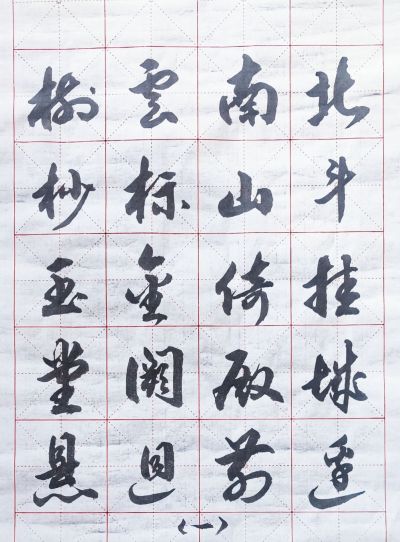 北斗挂城邊
南山倚殿前
雲标金闕迥
樹杪玉堂悬
(一)